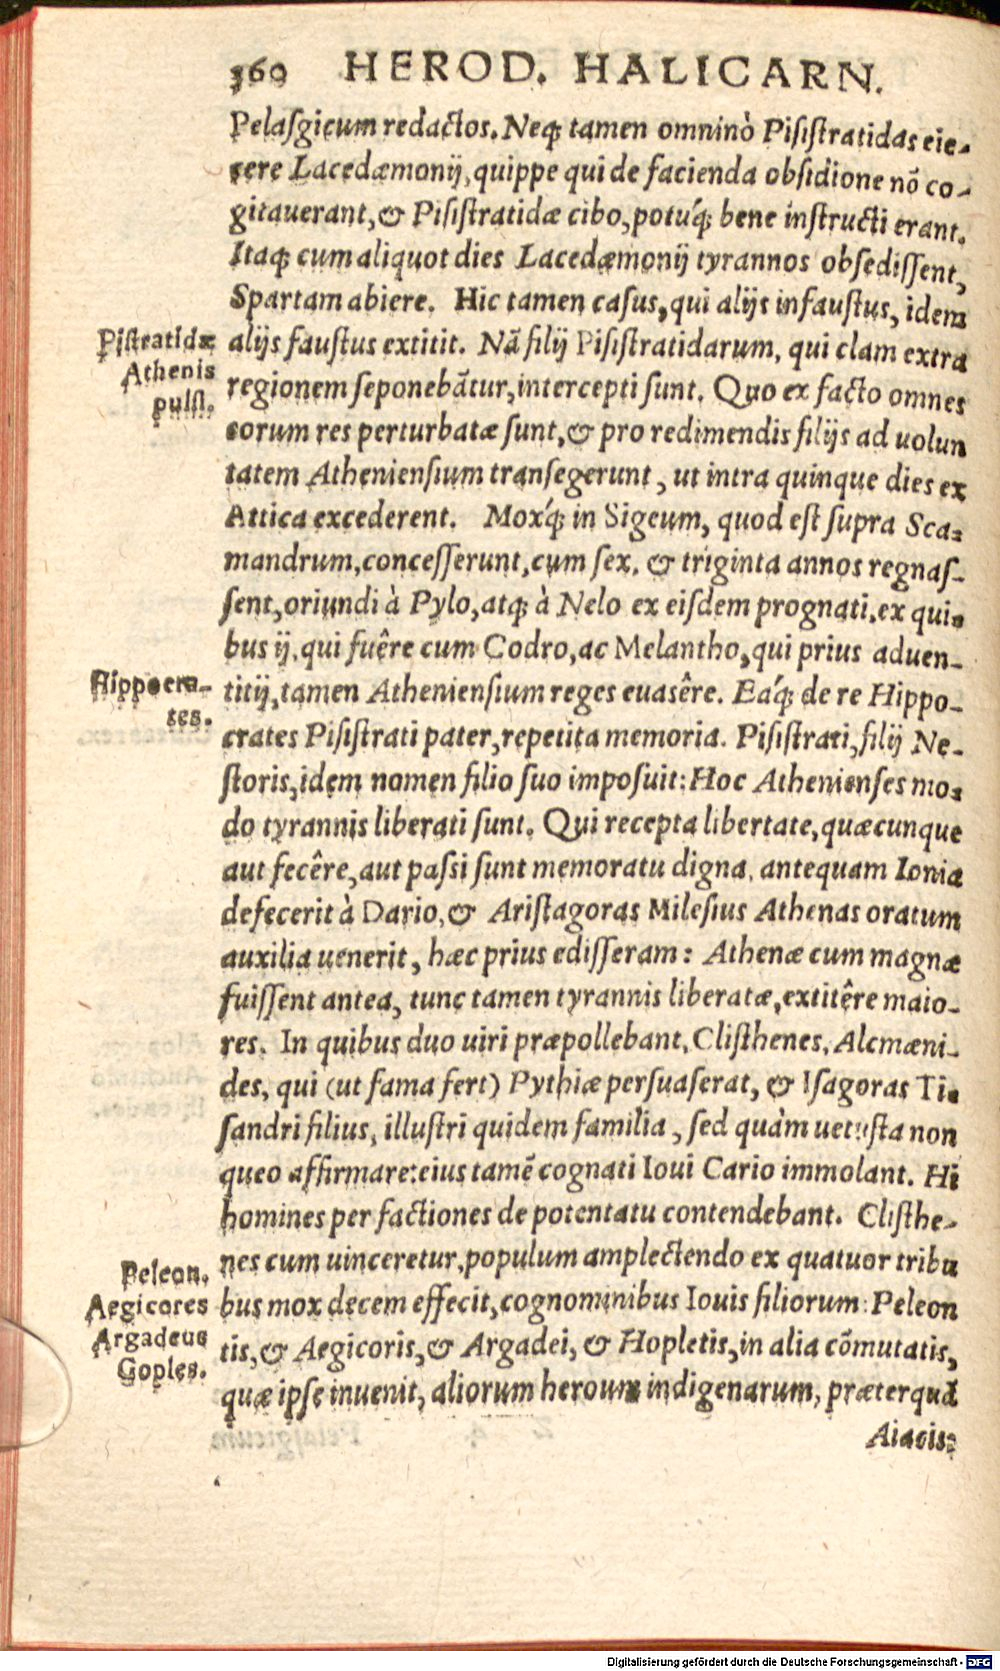 360 HEROD. HALICARN.
Pelaſgicum redactos. Neq; tamen omninò Piſiſtratidas eie-
cere Lacedæmonij, quippe qui de facienda obſidione nõ co-
gitauerant, & Piſiſtratidæ cibo, potuq́; bene inſtructi erant.
Itaq; cum aliquot dies Lacedæmonij tyrannos obſediſſent,
Spartam abiere. Hic tamen caſus, qui alijs infauſtus, idem
alijs fauſtus extitit. Nã filij Piſiſtratidarum, qui clam extra
regionem ſeponebãtur, intercepti ſunt. Quo ex facto omnes
eorum res perturbatæ ſunt, & pro redimendis filijs ad uolun
tatem Athenienſium tranſegerunt, ut intra quinque dies ex
Attica excederent. Moxq́; in Sigeum, quod eſt ſupra Sca-
mandrum, conceſſerunt, cum ſex, & triginta annos regnaſ-
ſent, oriundi à Pylo, atq; à Nelo ex eiſdem prognati, ex qui-
bus ij, qui fuêre cum Codro, ac Melantho, qui prius aduen-
titij, tamen Athenienſium reges euasêre. Eaq́; de re Hippo-
crates Piſiſtrati pater, repetita memoria. Piſiſtrati, filij Ne-
ſtoris, idem nomen filio ſuo impoſuit: Hoc Athenienſes mo-
do tyrannis liberati ſunt. Qui recepta libertate, quæcunque
aut fecêre, aut paſſi ſunt memoratu digna, antequam Ionia
defecerit à Dario, & Ariſtagoras Mileſius Athenas oratum
auxilia uenerit, hæc prius ediſſeram: Athenæ cum magnæ
fuiſſent antea, tunc tamen tyrannis liberatæ, extitêre maio-
res. In quibus duo uiri præpollebant, Cliſthenes, Alcmæni-
des, qui (ut fama fert) Pythiæ perſuaſerat, & Iſagoras Ti-
ſandri filius, illuſtri quidem familia, ſed quàm uetuſta non
queo affirmare: eius tamẽ cognati Ioui Cario immolant. Hi
homines per factiones de potentatu contendebant. Cliſthe-
nes cum uinceretur, populum amplectendo ex quatuor tribu
bus mox decem effecit, cognominibus Iouis filiorum: Peleon
tis, & Aegicoris, & Argadei, & Hopletis, in alia cõmutatis,
quæ ipſe inuenit, aliorum heroum indigenarum, præterquã
Aiacis:
Piſtratidæ
Athenis
pulſi.
Hippocra-
tes.
Peleon.
Aegicores
Argadeus
Goples.
Digitalisierung gefördert durch die Deutsche Forschungsgemeinschaft - DFG